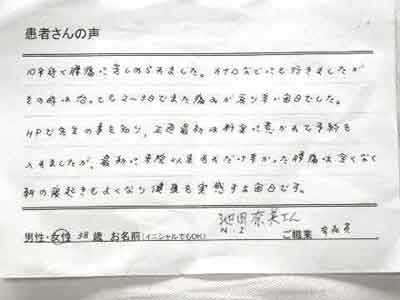 患者さんの声
10年近く腰痛に苦しめられました。カイロなどにも行きましたが
その時は治っても2〜3日でまた痛みが戻り辛い毎日でした。
HPで先生の事を知り、正直最初は料金に惹かれて予約を
入れましたが、最初に来院以来あれだけ辛かった腰痛は全くなく
朝の寝起きもよくなり健康を実感する毎日です。
男性・女性 38歳 お名前(イニシャルでもOK) 池田奈美さん N.I ご職業